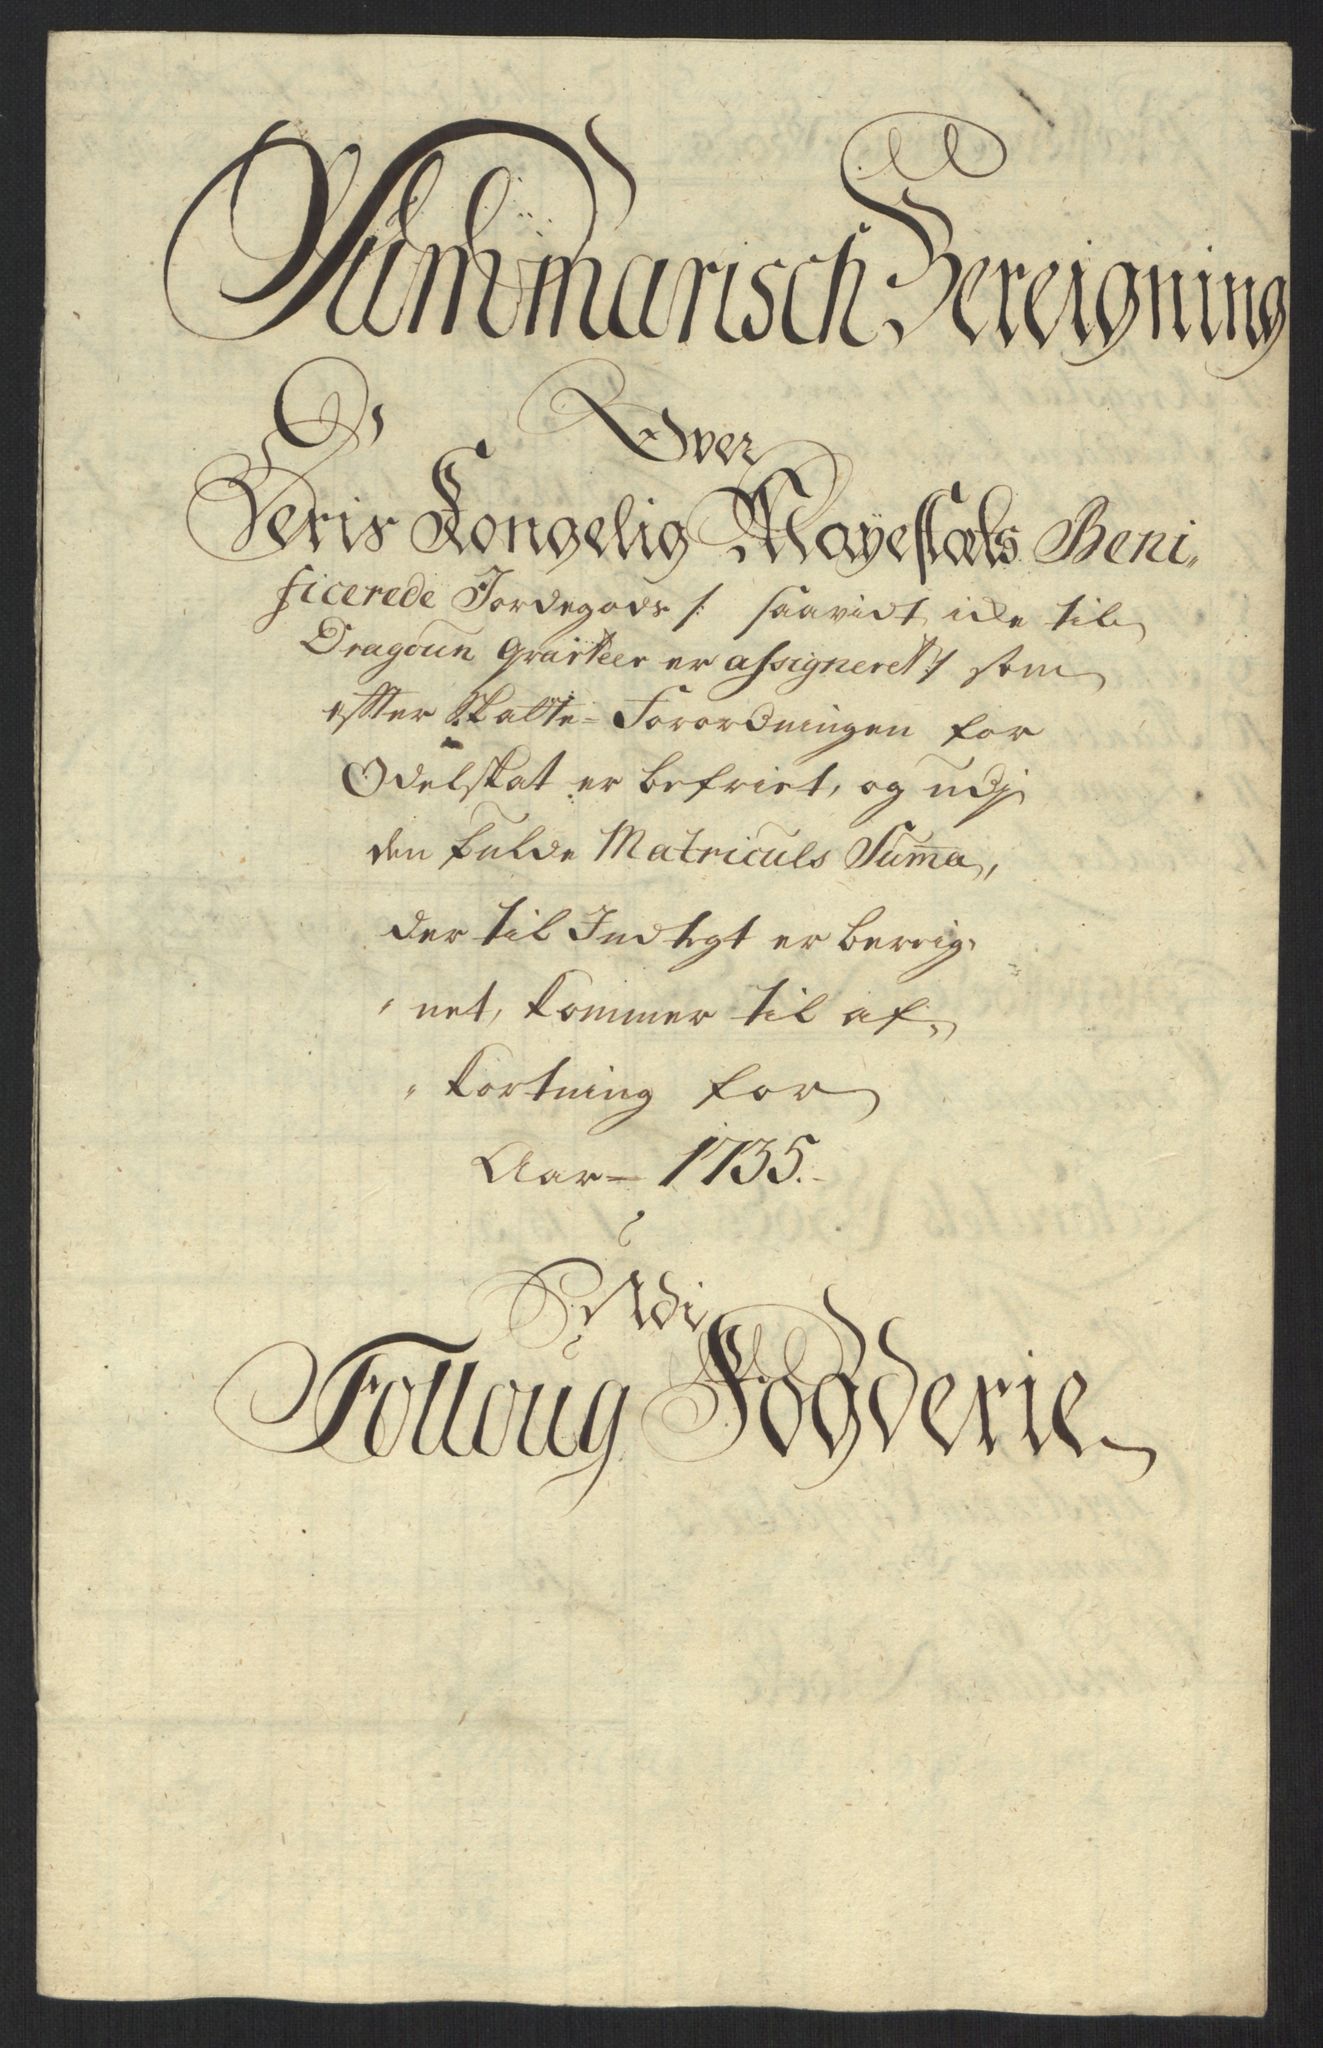 Summarisch Bereigning
Over
Deris Kongelig Mayestæts Beni-
ficerede Jordegods /: saavidt icke til
Dragoun qvarteer er assigneret :/ som
effter Skatte-Forordningen for
Odelskat er befriet, og udj
den fulde Matriculs Suma,
der til Indtegt er bereig-
net, kommer til af-
kortning for
Aar 1735.
Udi
Folloug Fogderie